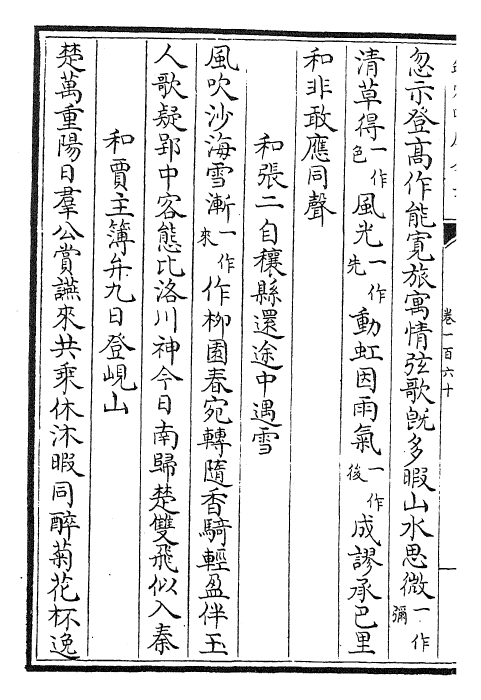 忽示登高作能寛旅寓情弦歌既多暇山水思微一作彌
清草得一作色風光一作先動虹因雨氣一作後成謬承巴里
和非敢應同聲
和張二自穰縣還途中遇雪
風吹沙海雪漸一作來作柳園春宛轉隨香騎輕盈伴玉
人歌疑郢中客態比洛川神今日南歸楚雙飛似入秦
和賈主簿弁九日登峴山
楚萬重陽日羣公賞讌來共乘休沐暇同醉菊花杯逸
卷一百六十